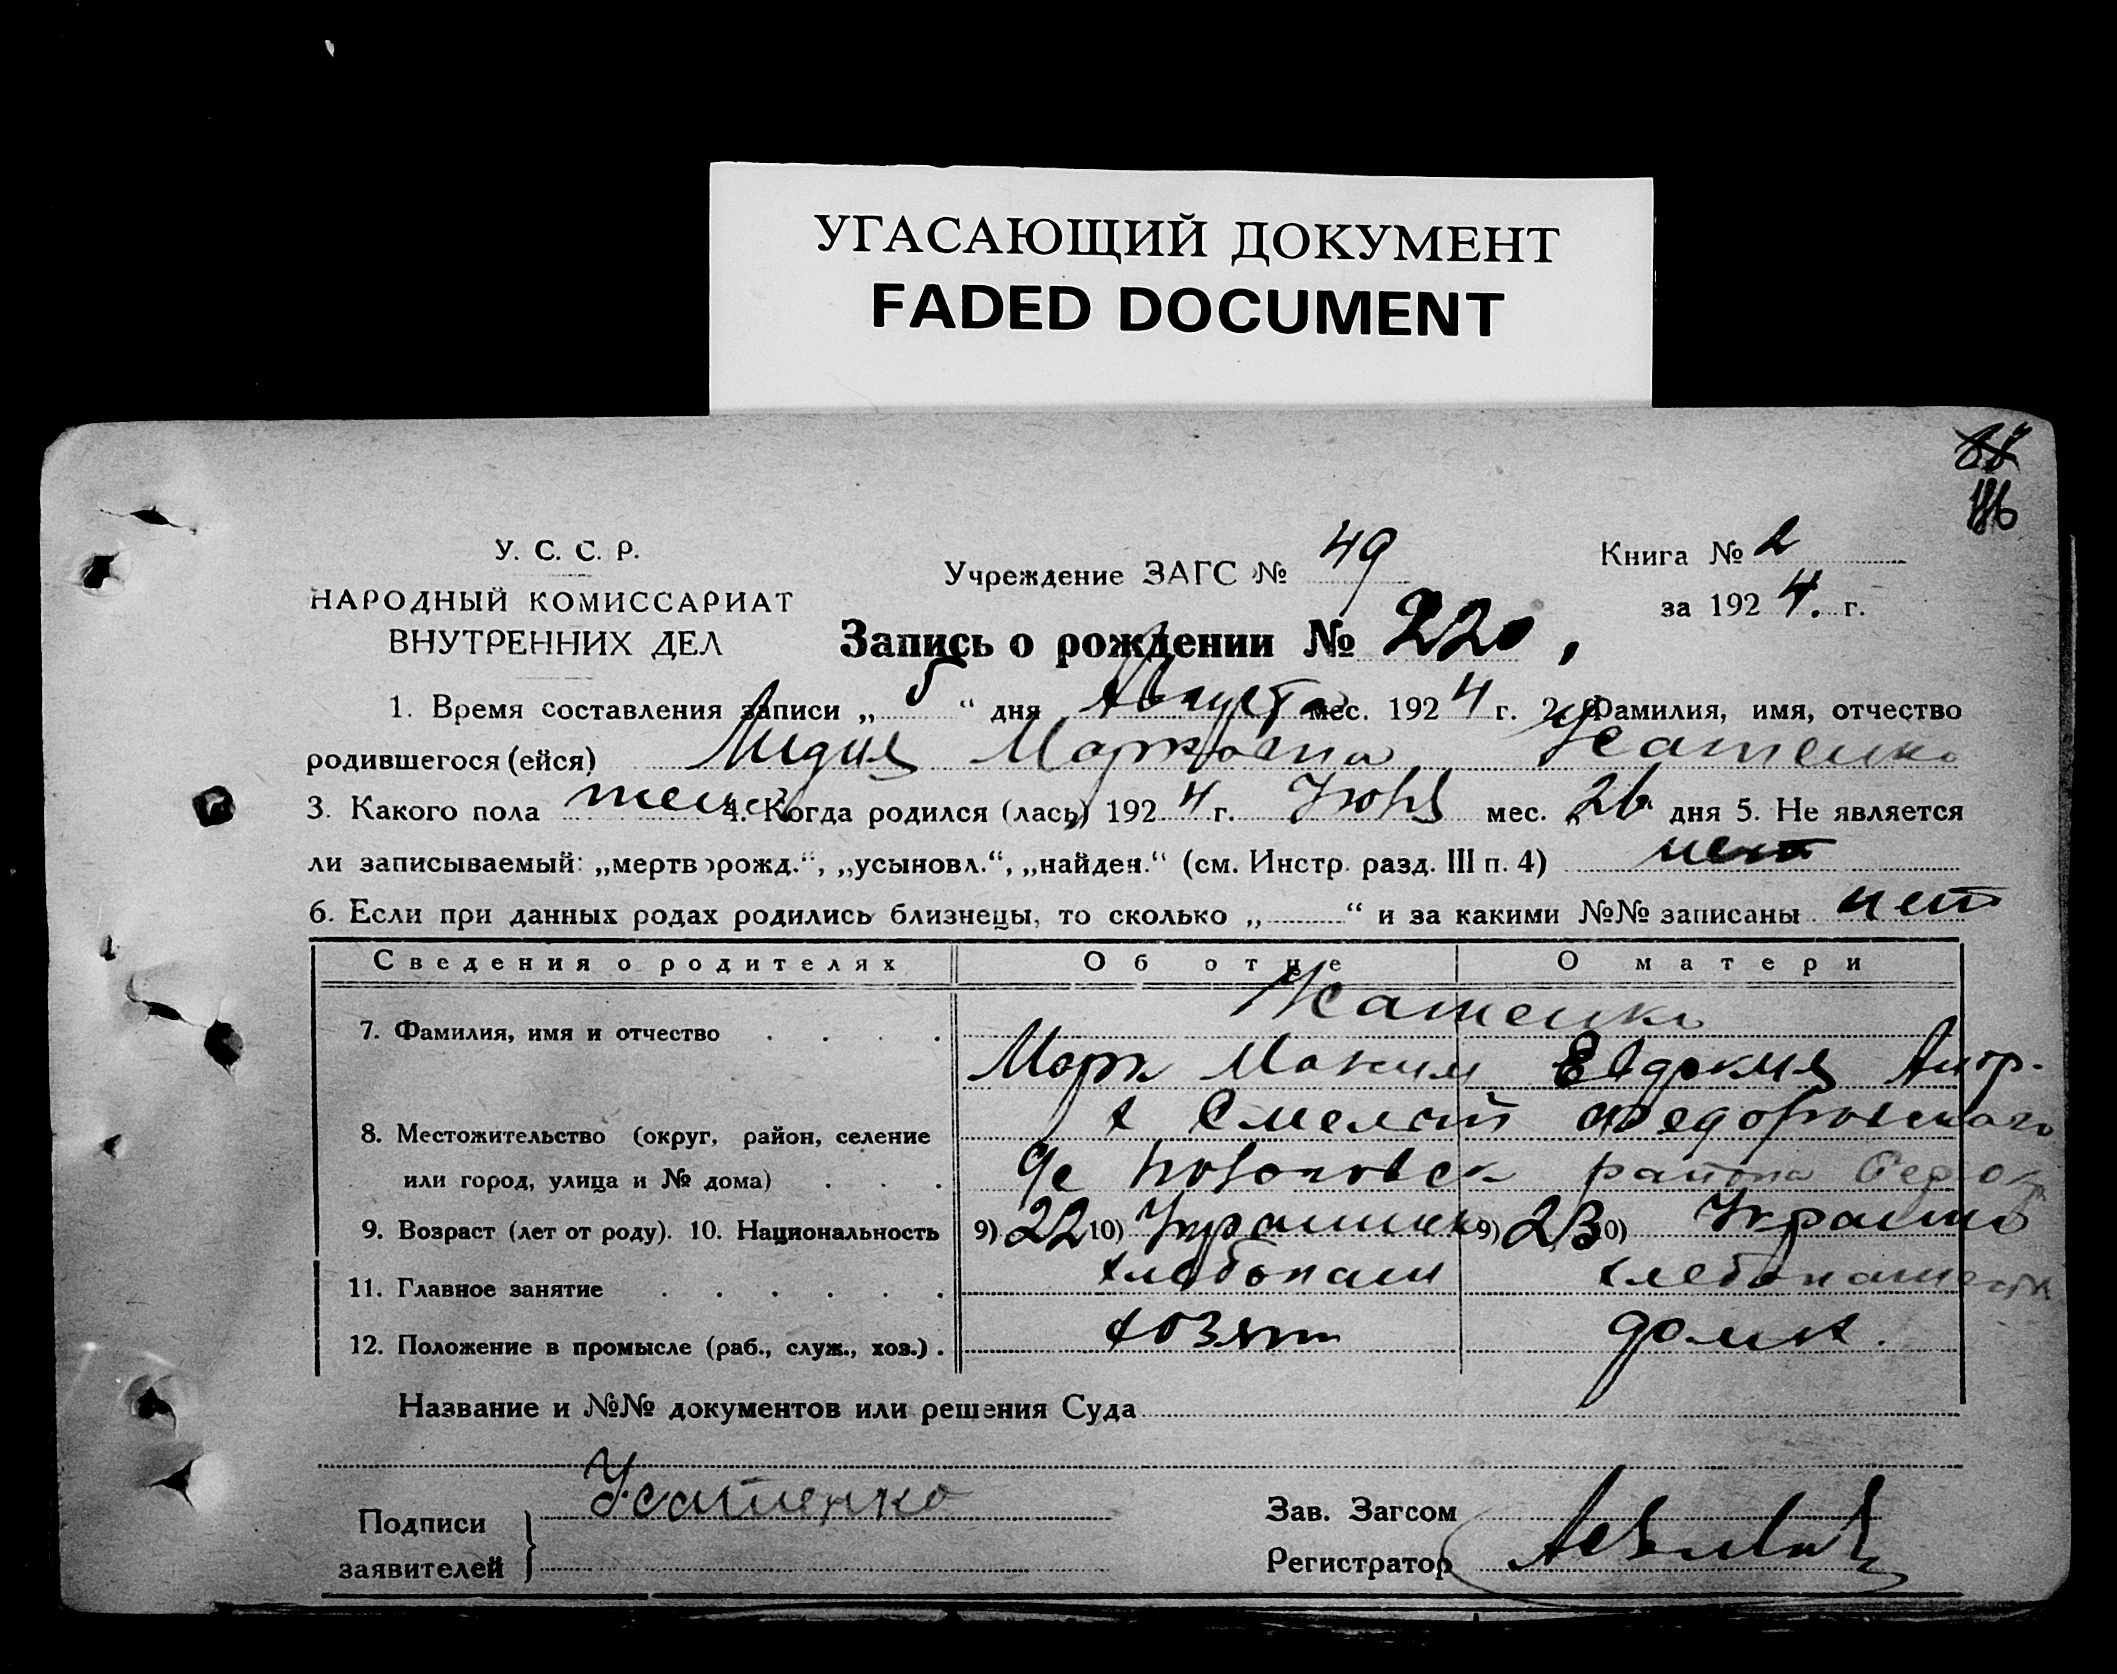 УГАСАЮЩИЙ ДОКУМЕНТ
FADED DOCUMENT
У. С. С. Р.
НАРОДНЫЙ КОМИССАРИАТ
ВНУТРЕННИХ ДЕЛ
Учреждение ЗАГС № 49
Книга № 2
за 1924. г.
Запись о рождении № 220,
1. Время составления записи „5“ дня Августа мес. 1924 г. 2. Фамилия, имя, отчество
родившегося (ейся) Лидия Марковна Усатенко
3. Какого пола женс 4. Когда родился (лась) 1924 г. Июля мес. „26“ дня 5. Не является
ли записываемый: „мертворожд.“, „усыновл.“, „найден.“ (см. Инстр. разд. III п. 4) нет
6. Если при данных родах родились близнецы, то сколько „ “ и за какими №№ записаны нет
Сведения о родителях Об отце О матери
7. Фамилия, имя и отчество Усатенко
Марк Максим Евдокия Андр.
8. Местожительство (округ, район, селение х Смелый Федоровского
или город, улица и № дома) района
9. Возраст (лет от роду). 10. Национальность 9) 22 10) Украинец 9) 23 10) Украин
11. Главное занятие хлебопаш хлебопашест
12. Положение в промысле (раб., служ., хоз.) хозяин домх.
Название и №№ документов или решения Суда
Подписи
заявителей
Усатенко
Зав. Загсом
Регистратор